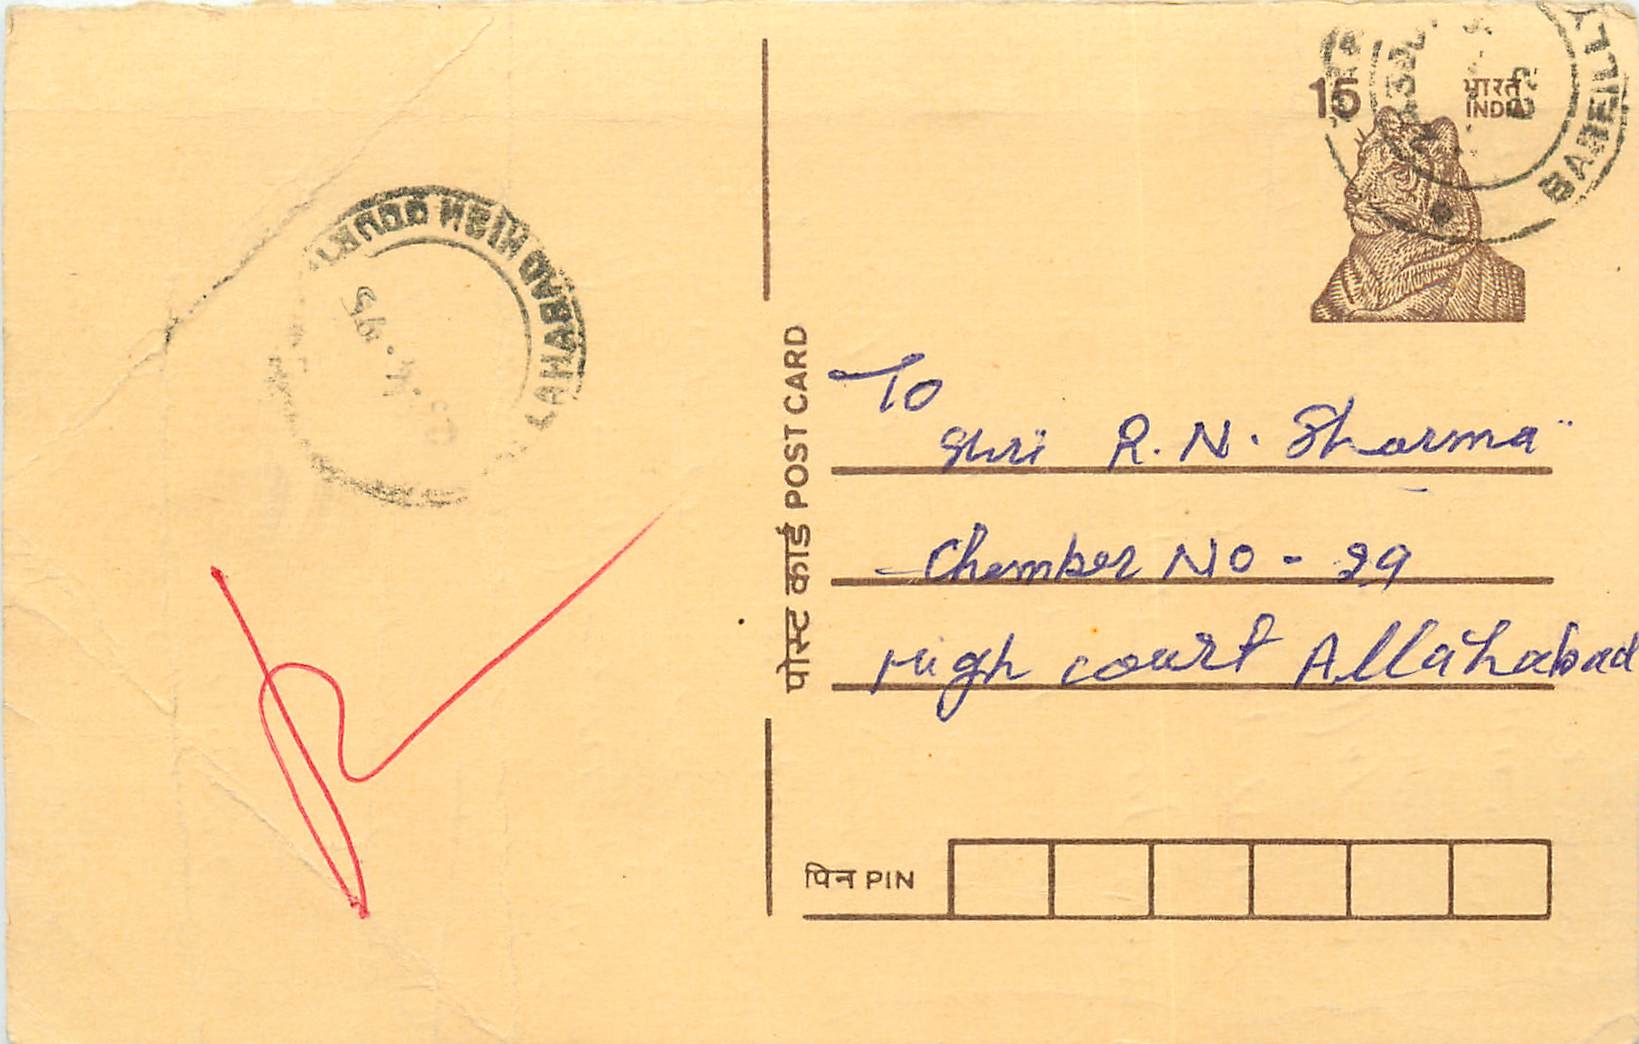 15
भारत
INDIA
BAREILLY
ALLAHABAD HIGH COURT
पोस्ट कार्ड POST CARD
To
Shri R.N. Sharma
Chember NO - 29
High court Allahabad
पिन PIN